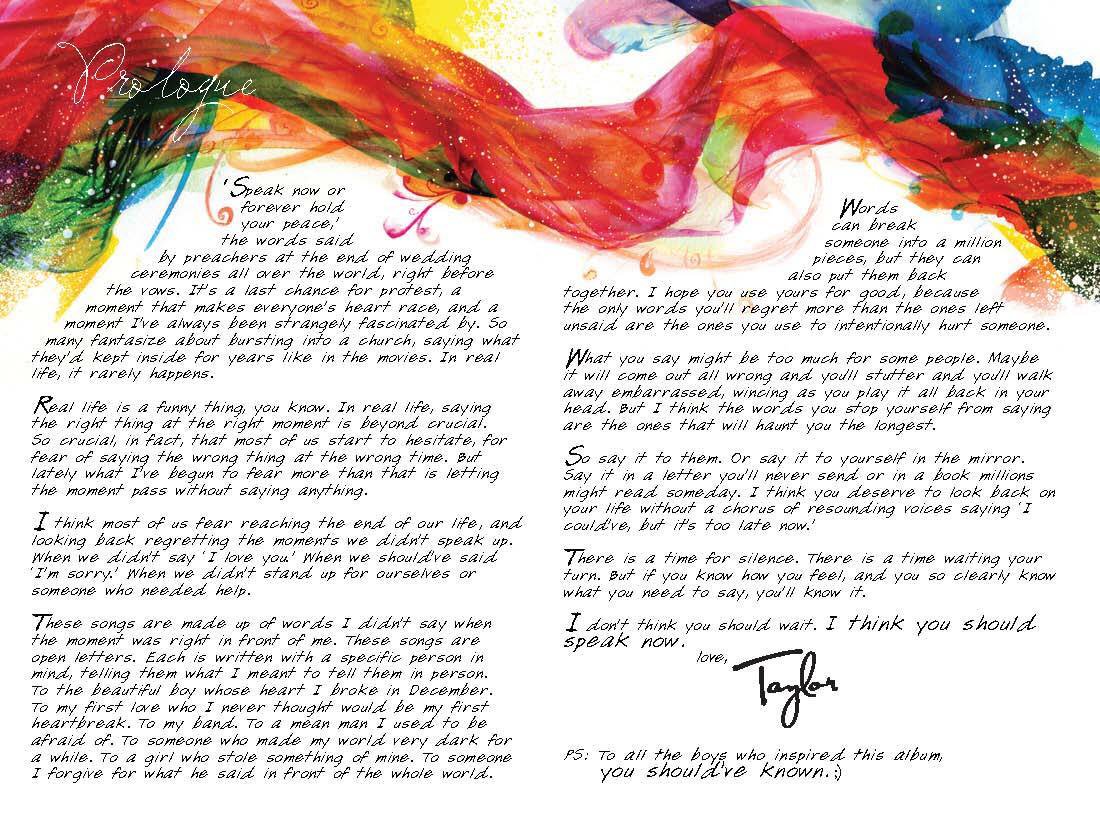 Prologue
'Speak now or
forever hold
your peace,'
the words said
by preachers at the end of wedding
ceremonies all over the world, right before
the vows. It's a last chance for protest, a
moment that makes everyone's heart race, and a
moment I've always been strangely fascinated by. So
many fantasize about bursting into a church, saying what
they'd kept inside for years like in the movies. In real
life, it rarely happens.
Real life is a funny thing, you know. In real life, saying
the right thing at the right moment is beyond crucial.
So crucial, in fact, that most of us start to hesitate, for
fear of saying the wrong thing at the wrong time. But
lately what I've begun to fear more than that is letting
the moment pass without saying anything.
I think most of us fear reaching the end of our life, and
looking back regretting the moments we didn't speak up.
When we didn't say 'I love you.' When we should've said
'I'm sorry.' When we didn't stand up for ourselves or
someone who needed help.
These songs are made up of words I didn't say when
the moment was right in front of me. These songs are
open letters. Each is written with a specific person in
mind, telling them what I meant to tell them in person.
To the beautiful boy whose heart I broke in December.
To my first love who I never thought would be my first
heartbreak. To my band. To a mean man I used to be
afraid of. To someone who made my world very dark for
a while. To a girl who stole something of mine. To someone
I forgive for what he said in front of the whole world.
Words
can break
someone into a million
pieces, but they can
also put them back
together. I hope you use yours for good, because
the only words you'll regret more than the ones left
unsaid are the ones you use to intentionally hurt someone.
What you say might be too much for some people. Maybe
it will come out all wrong and you'll stutter and you'll walk
away embarrassed, wincing as you play it all back in your
head. But I think the words you stop yourself from saying
are the ones that will haunt you the longest.
So say it to them. Or say it to yourself in the mirror.
Say it in a letter you'll never send or in a book millions
might read someday. I think you deserve to look back on
your life without a chorus of resounding voices saying 'I
could've, but it's too late now.'
There is a time for silence. There is a time waiting your
turn. But if you know how you feel, and you so clearly know
what you need to say, you'll know it.
I don't think you should wait. I think you should
speak now.
love, Taylor
PS: To all the boys who inspired this album,
you should've known. ;)